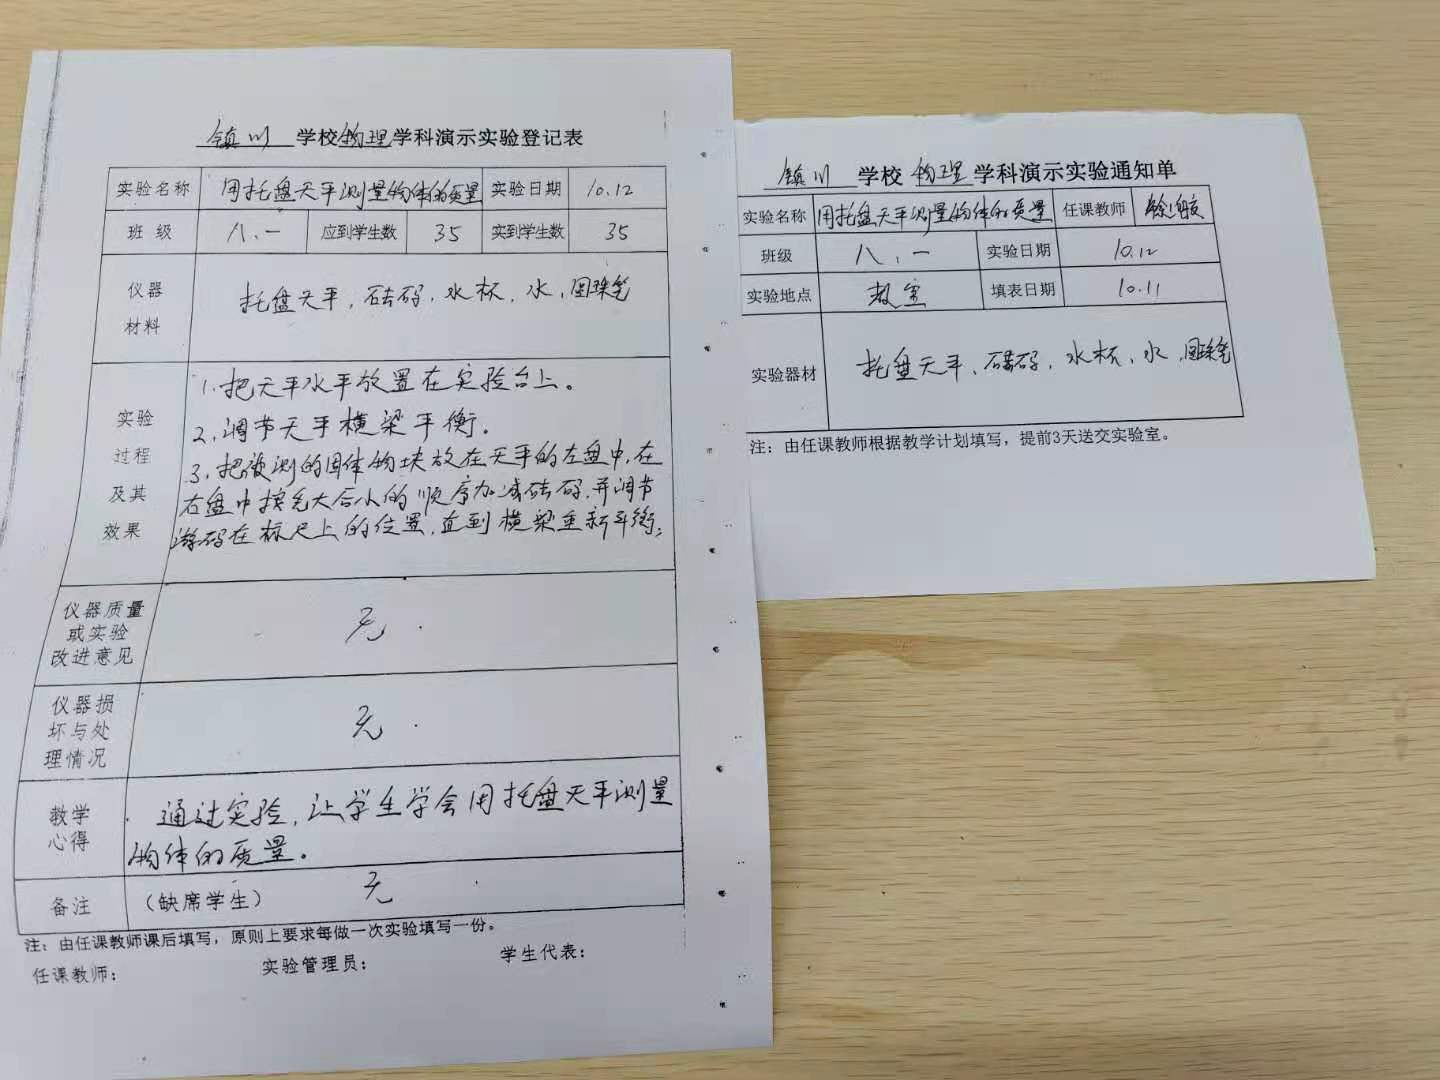 镇川 学校物理学科演示实验登记表
实验名称 用托盘天平测量物体的质量 实验日期 10.12
班 级 八、一 应到学生数 35 实到学生数 35
仪器
材料
托盘天平、砝码、水杯、水、圆珠笔
实验
过程
及其
效果
1、把天平水平放置在实验台上。
2、调节天平横梁平衡。
3、把被测的固体物块放在天平的左盘中,在
右盘中按先大后小的顺序加减砝码,并调节
游码在标尺上的位置,直到横梁重新平衡;
仪器质量
或实验
改进意见
无.
仪器损
坏与处
理情况
无.
教学
心得
通过实验,让学生学会用托盘天平测量
物体的质量。
备注 (缺席学生) 无
注:由任课教师课后填写,原则上要求每做一次实验填写一份。
任课教师: 实验管理员: 学生代表:
镇川 学校 物理 学科演示实验通知单
实验名称 用托盘天平测量物体的质量 任课教师
班级 八、一 实验日期 10.12
实验地点 教室 填表日期 10.11
实验器材 托盘天平、砝码、水杯、水、圆珠笔
注:由任课教师根据教学计划填写,提前3天送交实验室。